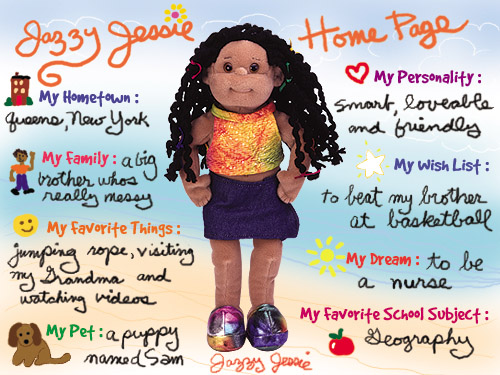 Jazzy Jessie Home Page
My Hometown :
queens, New York
My Family : a big
brother whos
really messy
My Favorite Things :
jumping rope, visiting
my Grandma and
watching videos
My Pet : a puppy
named Sam
My Personality :
smart, loveable
and friendly
My Wish List :
to beat my brother
at basketball
My Dream : to be
a nurse
My Favorite School Subject :
Geography
Jazzy Jessie